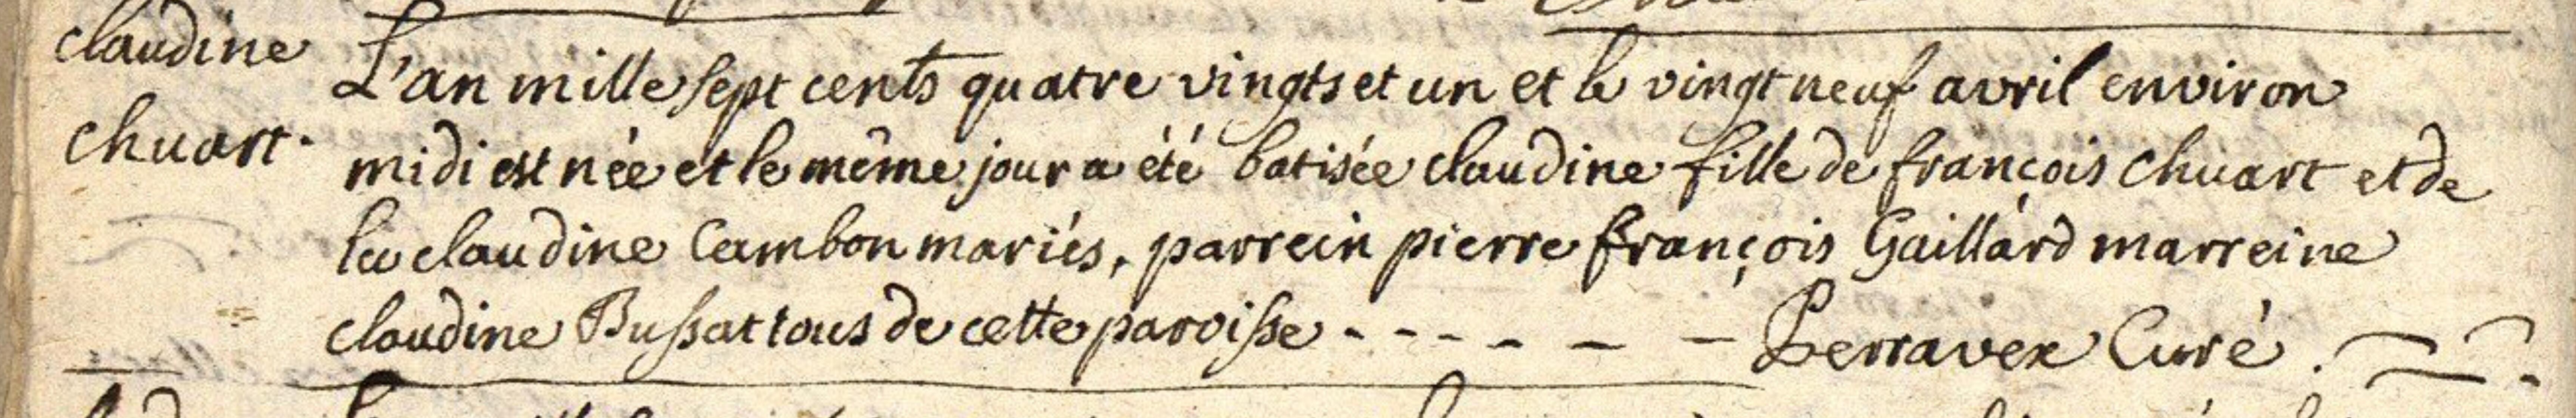 claudine
chuart.
L'an mille sept cents quatre vingts et un et le vingt neuf avril environ
midi est née et le même jour a été batisée claudine fille de françois Chuart et de
la claudine Cambon mariés, parrein pierre françois Gaillard marreine
claudine Bussat tous de cette paroisse - - - - - - Perravex Curé.